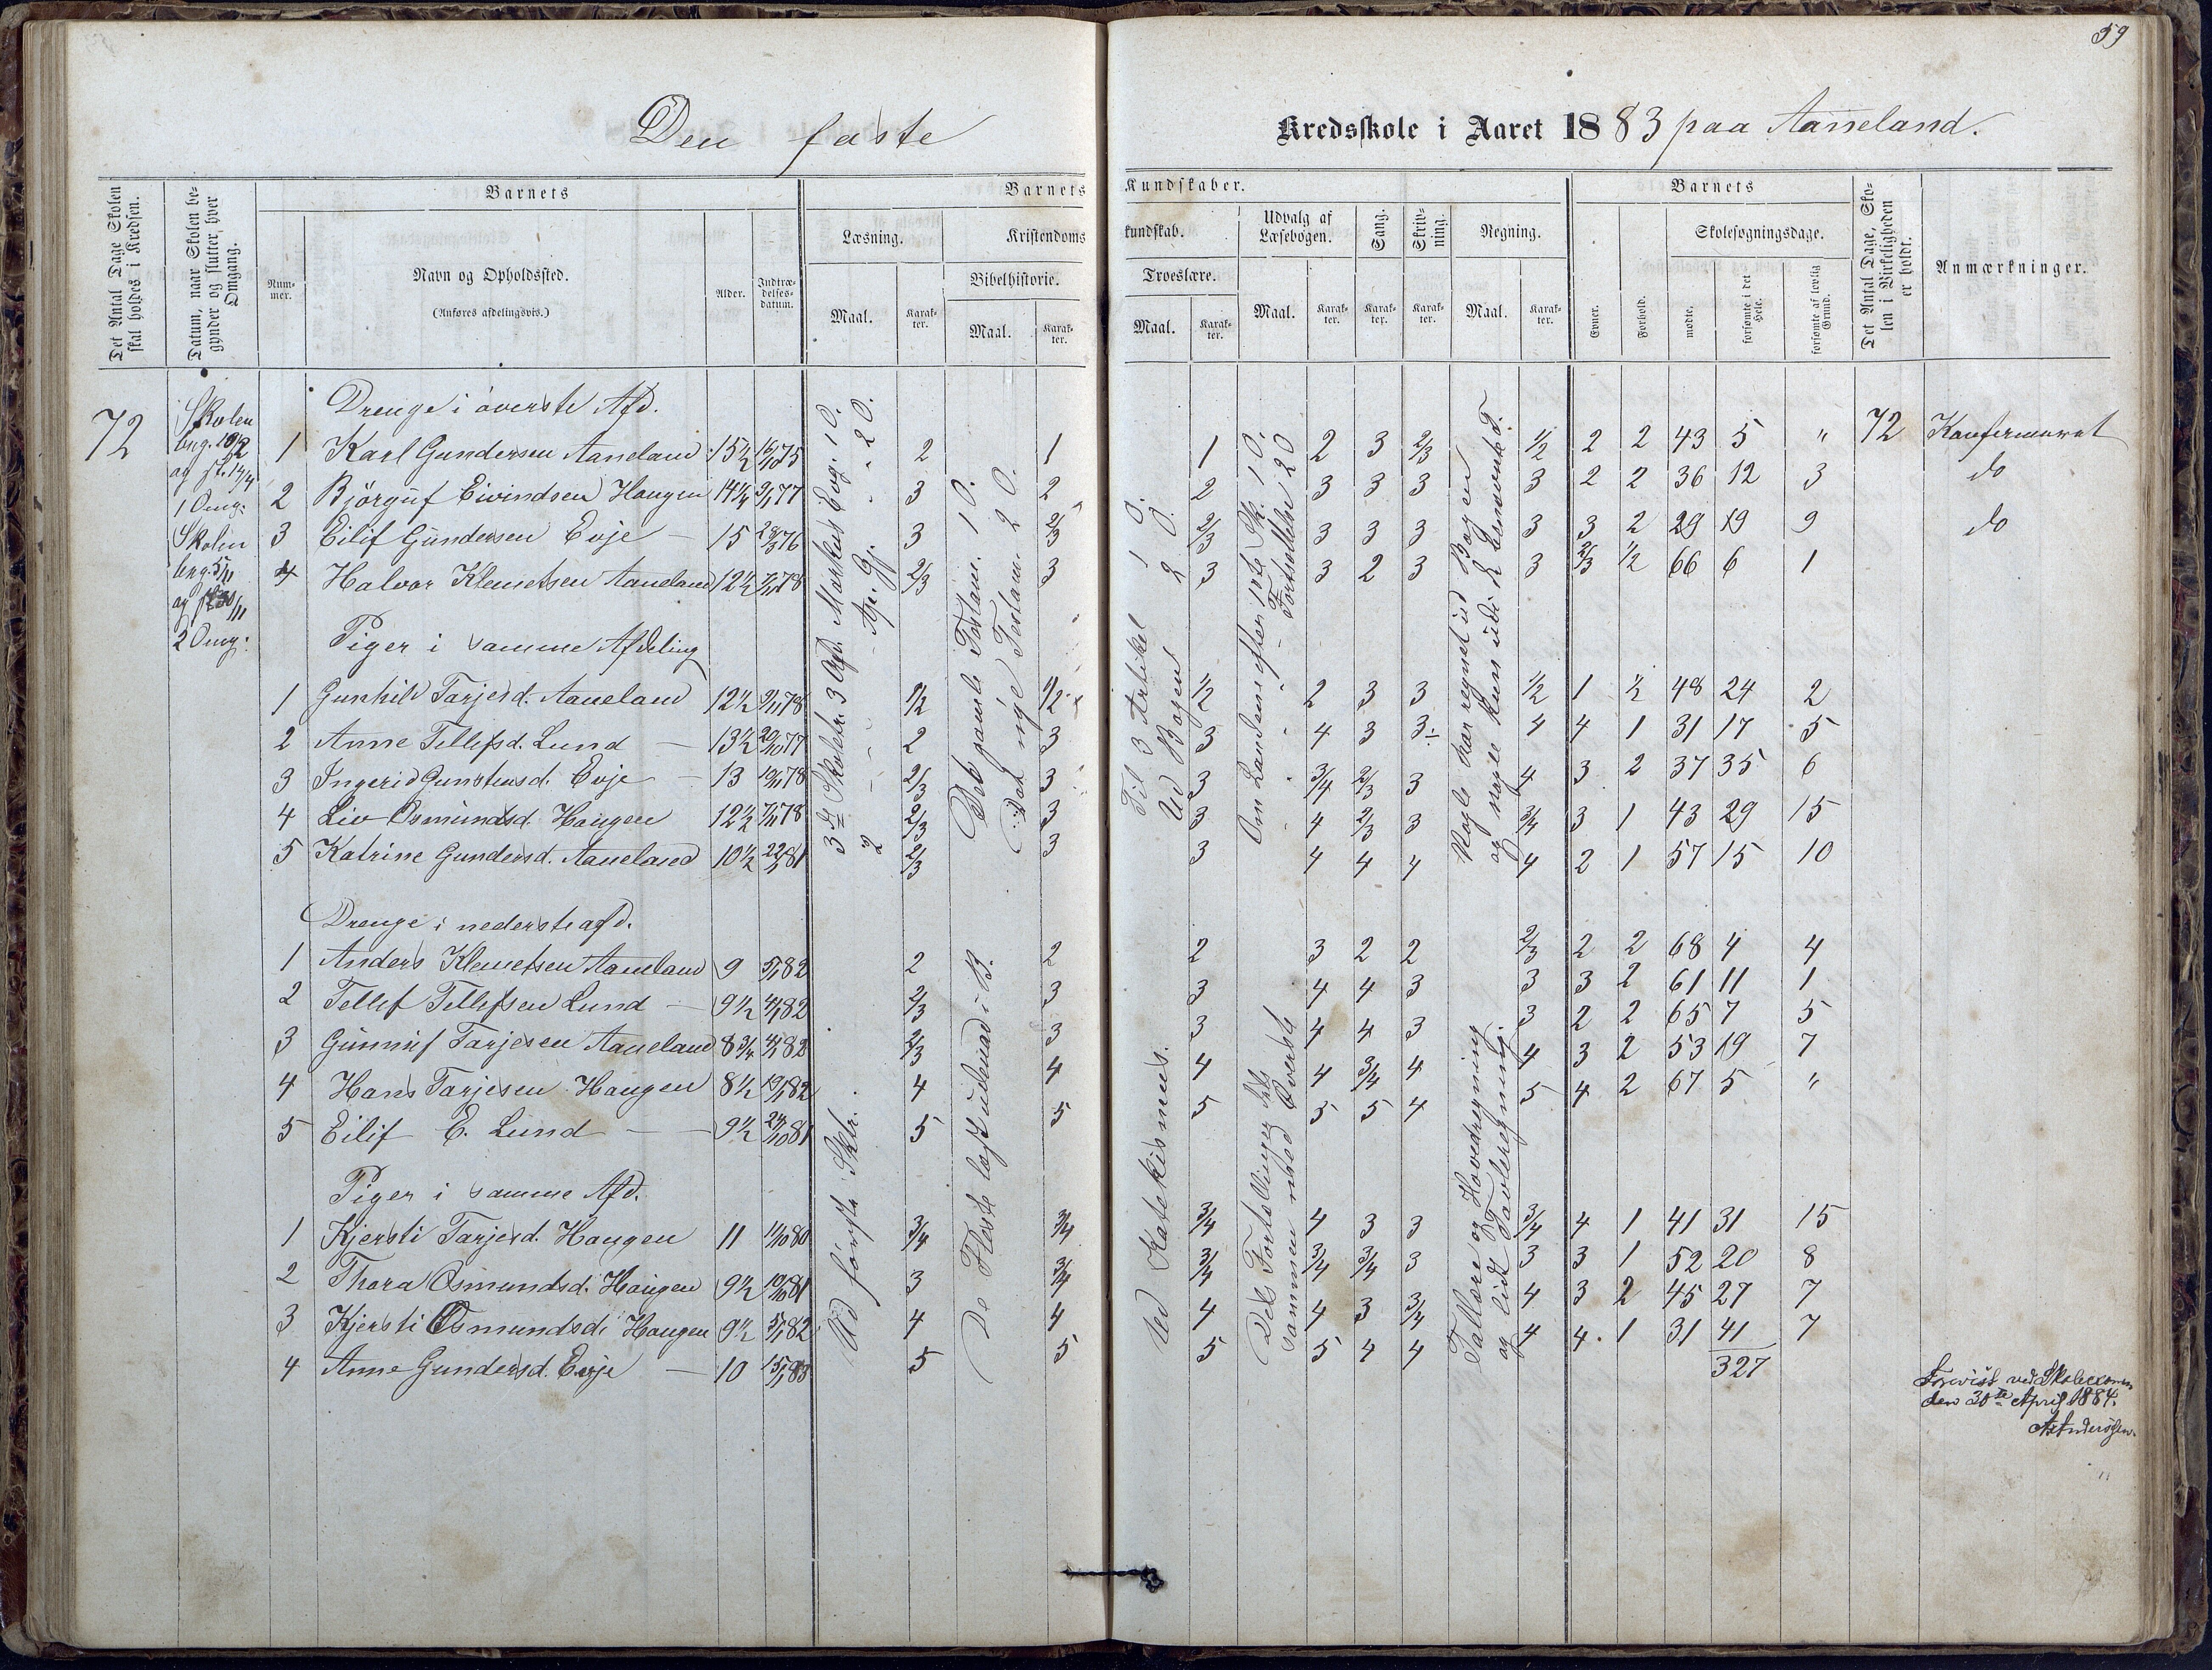 59
Den faste Kredsskole i Aaret 1883 paa Aaneland.
Det Antal Dage Skolen skal holdes i Kredsen.
Datum, naar Skolen begynder og slutter, hver Omgang.
Barnets
Nummer.
Navn og Opholdssted.
(Anføres afdelingsvis.)
Alder.
Indtrædelses-datum.
Barnets Kundskaber.
Læsning.
Maal.
Karakter.
Kristendomskundskab.
Bibelhistorie.
Maal.
Karakter.
Troeslære.
Maal.
Karakter.
Udvalg af Læsebogen.
Maal.
Karakter.
Sang.
Karakter.
Skrivning.
Karakter.
Regning.
Maal.
Karakter.
Barnets
Evner.
Forhold.
Skolesøgningsdage.
mødte.
forsømte i det Hele.
forsømte af lovlig Grund.
Det Antal Dage, Skolen i Virkeligheden er holdt.
Anmærkninger.
72
Skolen
beg. 10/2
og sl. 14/4
1 Omg:
Skolen
beg. 5/11
2 Omg:
Drenge i øverste Afd.
1 Karl Gundersen Aaneland 15½ 2 1 1 2 3 2/3 1/2 2 2 43 5 " 72 Konfirmeret
2 Bjørguf Eivindsen Haugen 14¼ 9/1 77 3 2 2 3 3 3 3 2 2 36 12 3 do
3 Eilif Gundersen Evje — 15 28/3 76 3 2/3 2/3 3 3 3 3 3 2 29 19 9 do
4 Halvor Klemetsen Aaneland 12½ 7/11 78 2/3 3 3 3 2 3 3 2/3 1/2 66 6 1
Piger i samme Afdeling
1 Gunhild Tarjesd. Aaneland 12½ 9/11 78 1/2 1/2 1/2 2 3 3 1/2 1 1/2 48 24 2
2 Anne Tellefsd. Lund — 13½ 20/10 77 2 3 3 4 3 3÷ 4 4 1 31 17 5
3 Ingerid Gunstensd. Evje — 13 19/11 78 2/3 3 3 3/4 2/3 3 4 3 2 37 35 6
4 Liv Osmundsd. Haugen 12½ 7/11 78 2/3 3 3 4 2/3 3 3/4 3 1 43 29 15
5 Katrine Gundersd. Aaneland 10½ 22/3 81 2/3 3 3 4 4 4 4 2 1 57 15 10
Drenge i nederste afd.
1 Anders Klemetsen Aaneland 9 5/1 82 2 2 2 3 2 2 2/3 2 2 68 4 4
2 Tellef Tellefsen Lund — 9½ 4/1 82 2/3 3 3 4 4 3 3 3 2 61 11 1
3 Gunnuf Tarjesen Aaneland 8¾ 4/1 82 2/3 3 3 4 4 3 3 2 2 65 7 5
4 Hans Tarjesen Haugen 8½ 19/1 82 4 4 4 4 3/4 4 4 3 2 53 19 7
5 Eilif E. Lund — 9½ 24/10 81 5 5 5 5 5 4 5 4 2 67 5 "
Piger i samme Afd.
1 Kjersti Tarjesd. Haugen 11 11/10 80 3/4 3/4 3/4 4 3 3 3/4 4 1 41 31 15
2 Thora Osmundsd. Haugen 9½ 10/10 81 3 3/4 3/4 3/4 3/4 3 3 3 1 52 20 8
3 Kjersti Osmundsd. Haugen 9½ 5/1 82 4 4 4 4 3 3/4 4 3 2 45 27 7
4 Anne Gundersd. Evje — 10 15/1 83 5 5 5 5 4 4 4 4 1 31 41 7
327
3die Skoletr. 3 Afd. Markus Evg. 1 O.
2 " " " Ap. Gj. " 2 O.
Det gamle Testam. 1 O.
Det nye Testam. 2 O.
Til 3 Artikel 1 O.
Ud Bogen 2 O.
Om Landene efter 1ste Sk. 1 O.
" " Fortsættelse 2 O
Nogle har regnet ud Bogen
Ud første Sktr.
De Fleste læst udenad i B.
Ud Katekismus.
Dels Fortællinger dels
sammen med Øverste
Tallære og Hovedregning
og lidt Tavleregning.
Forevist ved Skoleexamen
den 30te April 1884.